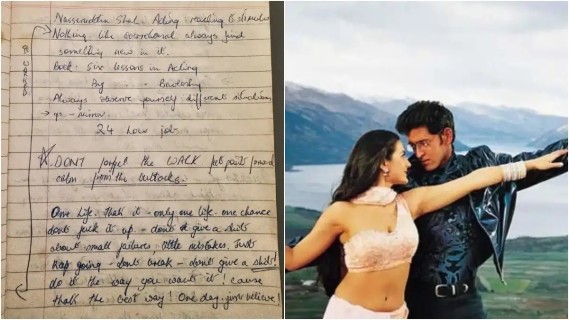 Naseeruddin Shah. Acting reacting to stimulus
Nothing like overotional always find
something new in it.
Book. Six lessons in Acting
By
Always observe yourself different situations
→ yr - mirror.
24 hour job
DONT forget the WALK
calm from the buttocks.
One life. thats it - only one life - one chance
dont fuck it up - dont give a shits
about small failures - little mistakes. Just
Kap going - dont break - dont give a shits!
do it the way you wants it! cause
thats the best way! One day. just believe!